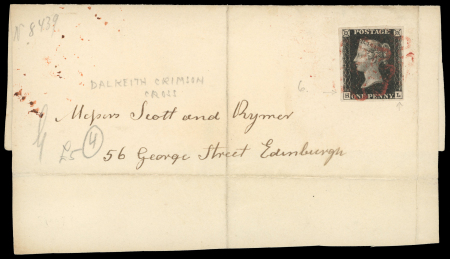 N 8439
POSTAGE
H ONE PENNY L
DALKEITH CRIMSON
CROSS
6.
Messrs Scott and Rymer
£5 4
56 George Street Edinburgh